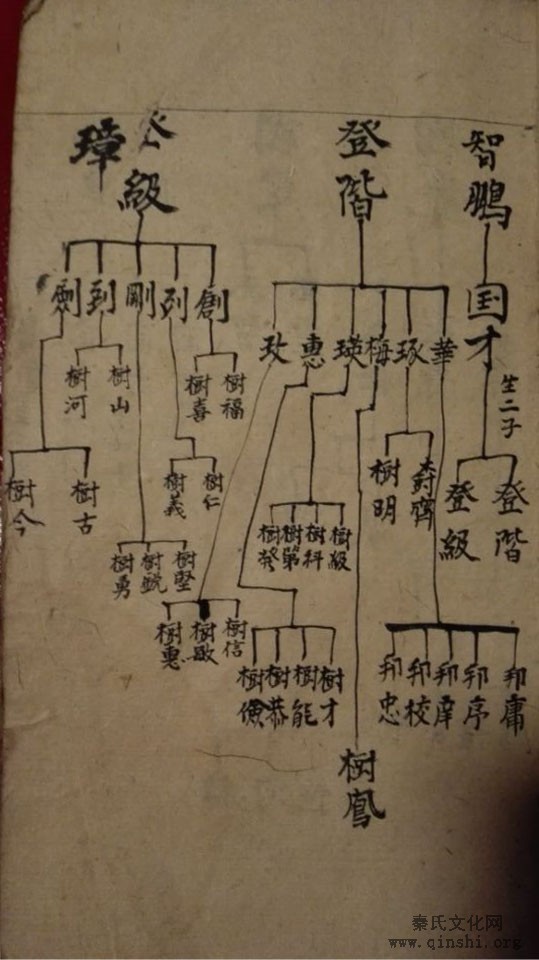 智鹏
国才
生二子
登階
登級
登階
華
琢
梅
瑛
惠
玫
邦庸
邦序
邦庠
邦校
邦忠
樹齊
樹明
樹鳳
樹級
樹科
樹第
樹發
樹才
樹能
樹恭
樹儉
樹信
樹敏
樹惠
登級
璋
創
列
剛
到
劍
樹福
樹喜
樹仁
樹義
樹堅
樹銳
樹勇
樹山
樹河
樹古
樹今
秦氏文化网
www.qinshi.org